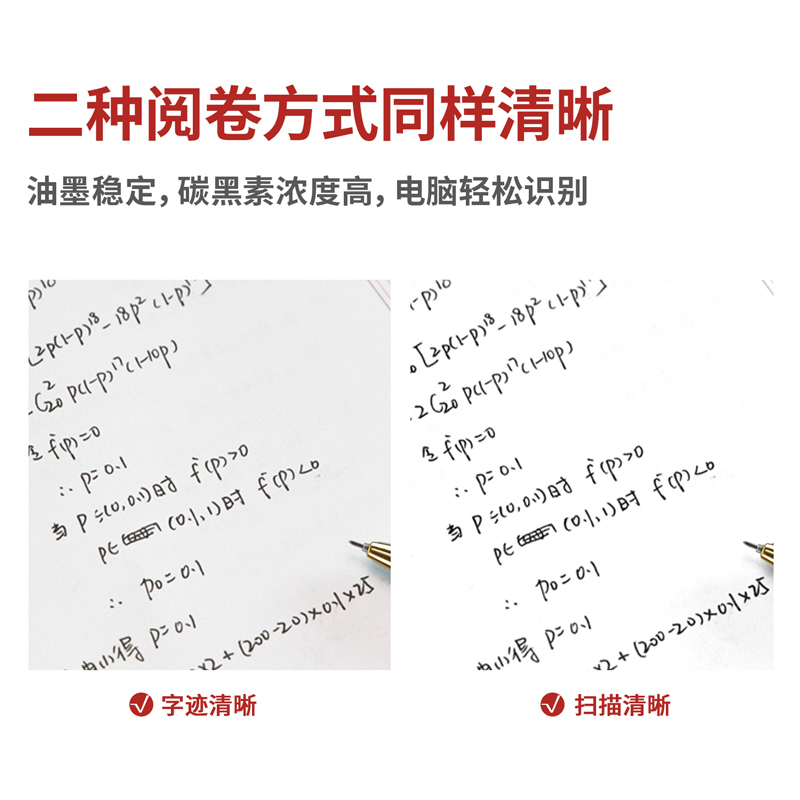 二种阅卷方式同样清晰
油墨稳定，碳黑素浓度高，电脑轻松识别
-p)¹⁰
[2p(1-p)¹⁸ - 18p² (1-p)¹⁷]
2C²₂₀ p(1-p)¹⁷(1-10p)
f'(p)=0
∴ p=0.1
当 P=(0,0.1)时 f'(p)>0
p∈ (0.1,1)时 f'(p)<0
∴ p₀=0.1
得 p=0.1
×2+(200-20)×0.1×25
-p)¹⁰
[2p(1-p)¹⁸ - 18p² (1-p)¹⁷]
2C²₂₀ p(1-p)¹⁷(1-10p)
令 f'(p)=0
∴ p=0.1
当 P=(0,0.1)时 f'(p)>0
p∈ (0.1,1)时 f'(p)<0
∴ p₀=0.1
得 p=0.1
×2+(200-20)×0.1×25
字迹清晰
扫描清晰